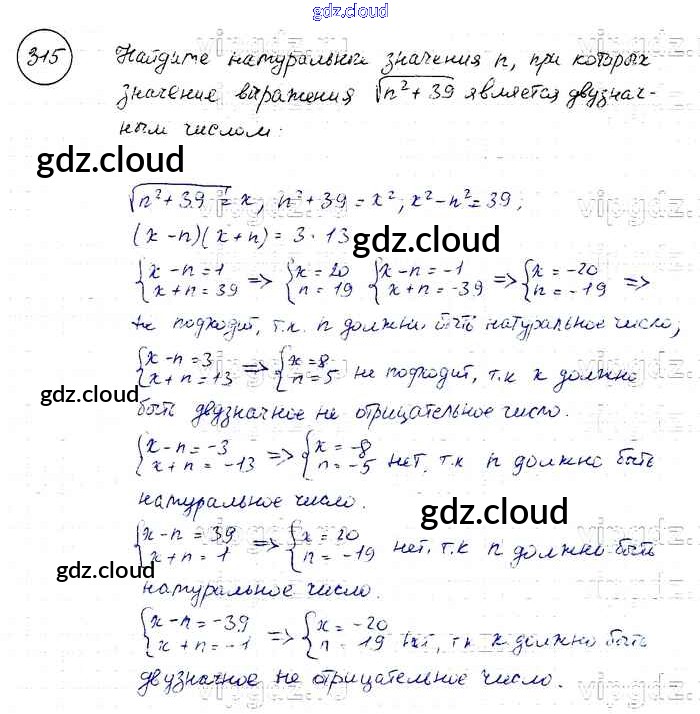 gdz.cloud
315 Найдите натуральные значения n, при которых
значение выражения √n²+39 является двузнач-
ным числом.
gdz.cloud
√n²+39 = x, n²+39 = x², x²-n²=39;
(x-n)(x+n)=3·13
gdz.cloud
{x-n=1 x+n=39 => {x=20 n=19 {x-n=-1 x+n=-39 => {x=-20 n=-19 =>
не подходит, т.к. n должно быть натуральное число;
{x-n=3 x+n=13 => {x=8 n=5 не подходит, т.к x должно
gdz.cloud
быть двузначное не отрицательное число.
{x-n=-3 x+n=-13 => {x=-8 n=-5 нет, т.к n должно быть
натуральное число.
gdz.cloud
{x-n=39 x+n=1 => {x=20 n=-19 нет, т.к n должно быть
gdz.cloud
натуральное число.
{x-n=-39 x+n=-1 => {x=-20 n=19 нет, т.к x должно быть
двузначное не отрицательное число.